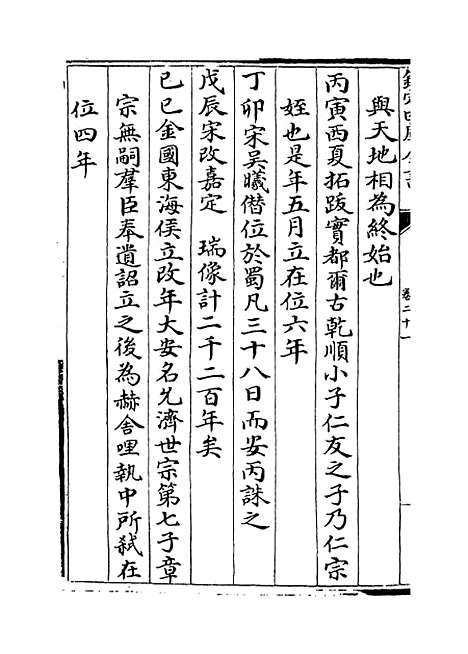 欽定四庫全書
卷二十一
與天地相為終始也
丙寅西夏拓跋實都爾古乾順小子仁友之子乃仁宗
姪也是年五月立在位六年
丁卯宋吳曦僭位於蜀凡三十八日而安丙誅之
戊辰宋改嘉定 瑞像計二千二百年矣
己巳金國東海侯立改年大安名允濟世宗第七子章
宗無嗣羣臣奉遺詔立之後為赫舍哩執中所弑在
位四年